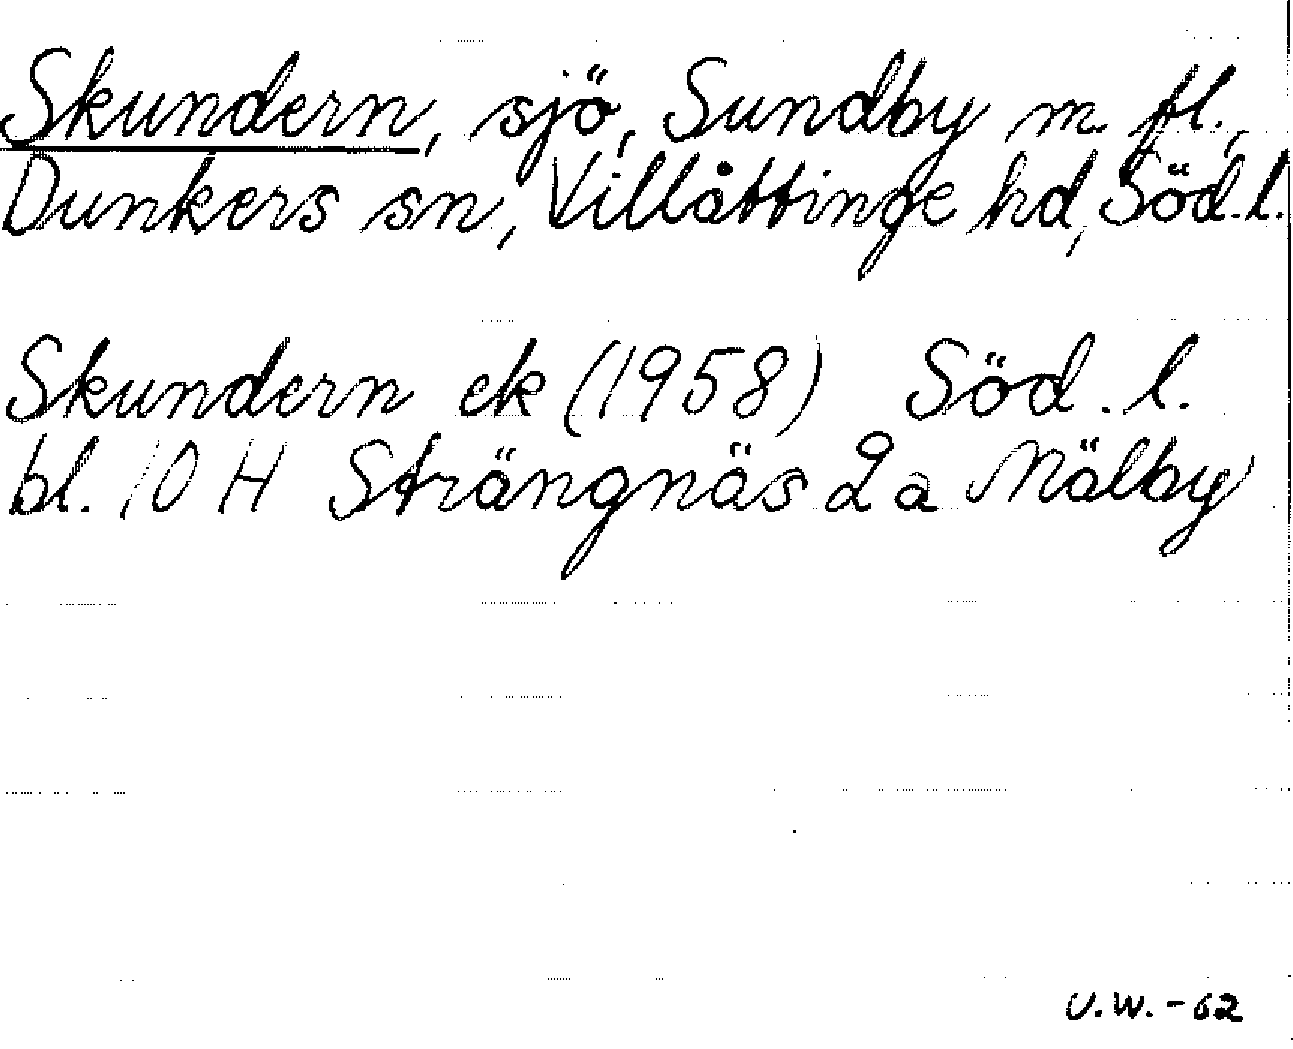 Skundern, sjö, Sundby m. fl.,
Dunkers sn, Villåttinge hd, Söd. l.
Skundern ek (1958) Söd. l.
bl. 10 H Strängnäs 2 a Mälby
U.W.-62